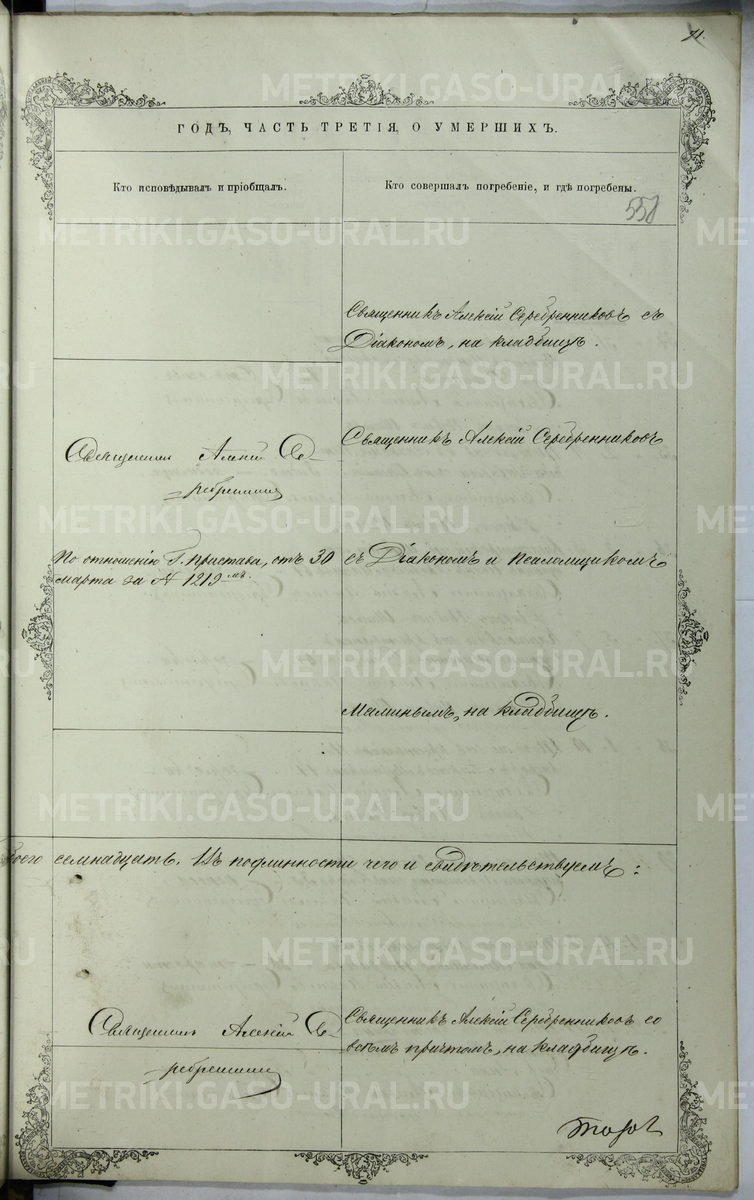 71.
ГОДЪ, ЧАСТЬ ТРЕТІЯ, О УМЕРШИХЪ.
Кто исповѣдывалъ и пріобщалъ.
Кто совершалъ погребеніе, и гдѣ погребены.
558
Священникъ Алексій Серебренниковъ съ
Діакономъ, на кладбищѣ.
Священникъ Алексій Се-
ребренник
Священникъ Алексій Серебренниковъ
По отношенію Г. Пристава, отъ 30
марта за № 1219мъ.
съ Діакономъ и псаломщикомъ
Малиным, на кладбищѣ.
обоего семнадцать. Въ подлинности чего и свидѣтельствуемъ:
Священникъ Алексій Се-
ребренник
Священникъ Алексій Серебренниковъ со
всѣмъ причтомъ, на кладбищѣ.
METRIKI.GASO-URAL.RU